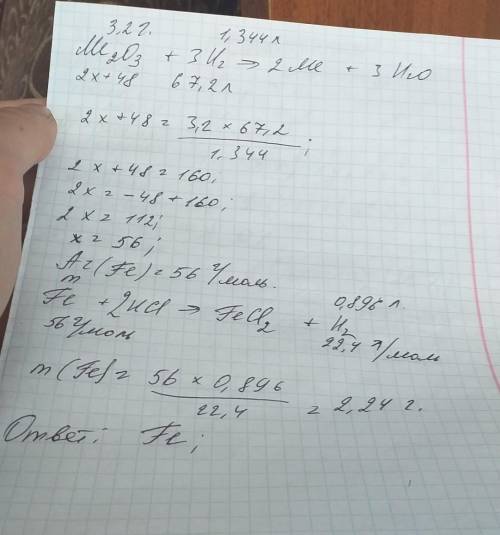 3,2 г. 1,344 л
Me₂O₃ + 3H₂ => 2Me + 3H₂O
2x+48 67,2 л
2x+48 = 3,2 × 67,2 / 1,344 ;
2x+48 = 160;
2x = -48 + 160;
2x = 112;
x = 56;
Ar(Fe) = 56 г/моль.
m 0,896 л.
Fe + 2HCl => FeCl₂ + H₂
56 г/моль 22,4 л/моль
m(Fe) = 56 × 0,896 / 22,4 = 2,24 г.
Ответ: Fe;